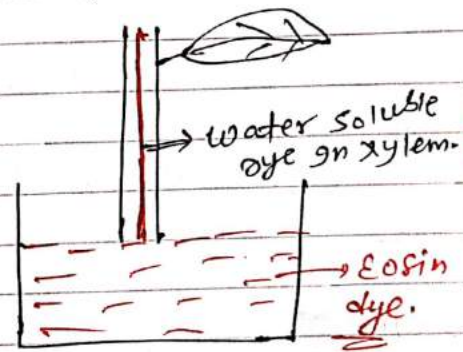 Water soluble
dye in xylem.
Eosin
dye.